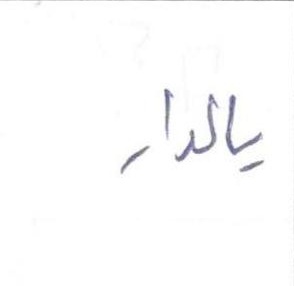 بالدار